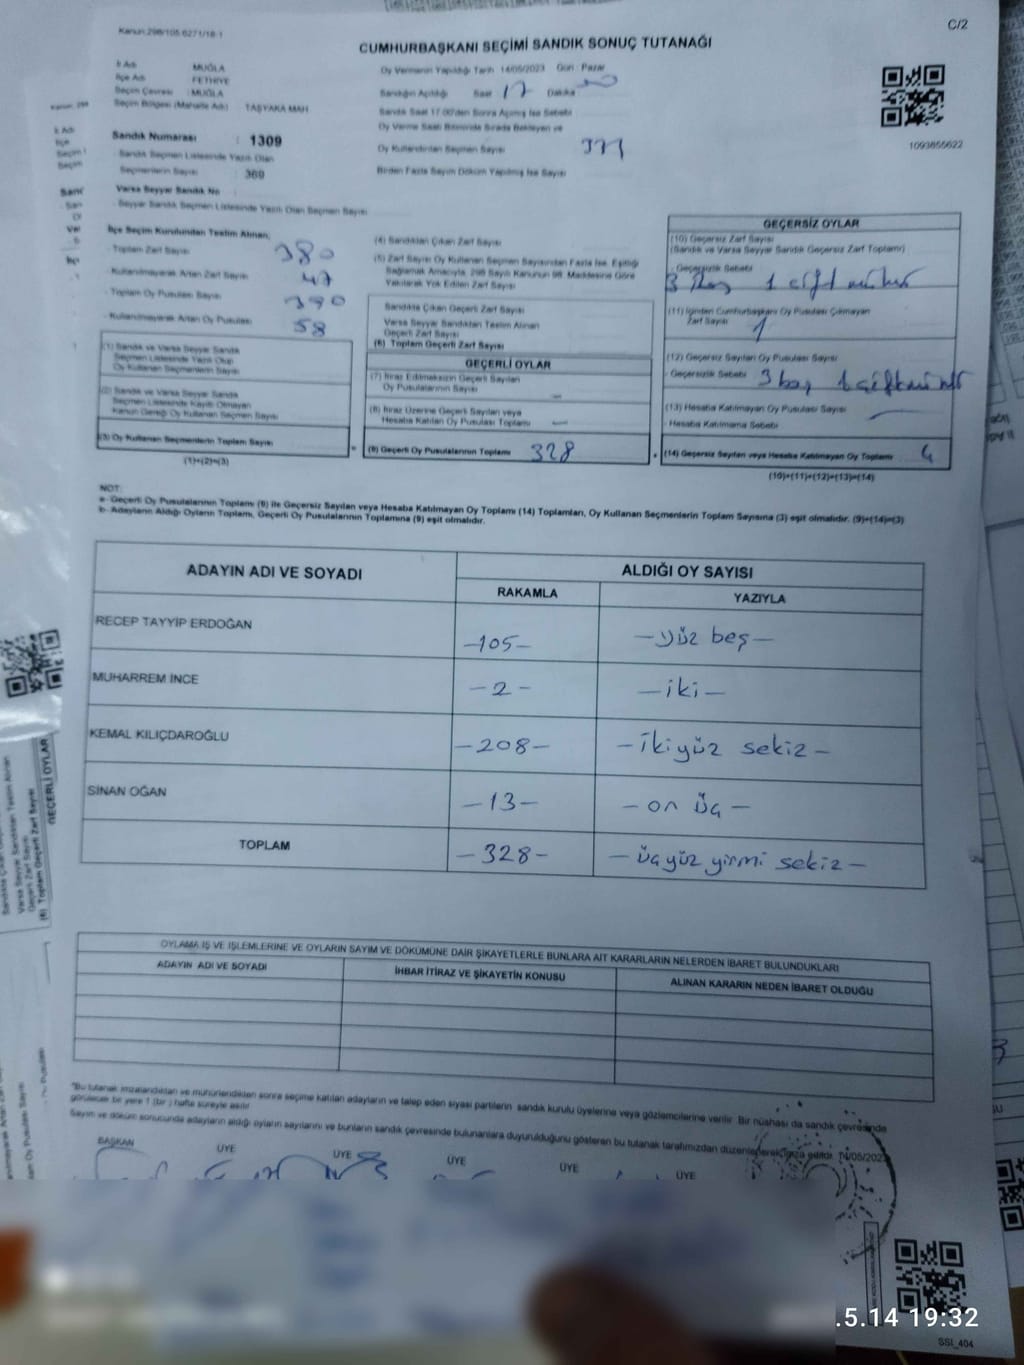 Kanun:298/105 6271/18-1
C/2
CUMHURBAŞKANI SEÇİMİ SANDIK SONUÇ TUTANAĞI
İl Adı MUĞLA
İlçe Adı FETHİYE
Seçim Çevresi : MUĞLA
Seçim Bölgesi (Mahalle Adı) TAŞYAKA MAH.
Sandık Numarası : 1309
Sandık Seçmen Listesinde Yazılı Olan
Seçmenlerin Sayısı : 369
Varsa Seyyar Sandık No
Seyyar Sandık Seçmen Listesinde Yazılı Olan Seçmen Sayısı
Oy Vermenin Yapıldığı Tarih 14/05/2023 Gün : Pazar
Sandığın Açıldığı Saat 17 Dakika
Sandık Saat 17:00'den Sonra Açılmış İse Sebebi
Oy Verme Saati Bitiminde Sırada Bekleyen ve
Oy Kullandırılan Seçmen Sayısı
Birden Fazla Sayım Döküm Yapılmış İse Sayısı
1093855622
İlçe Seçim Kurulundan Teslim Alınan;
Toplam Zarf Sayısı 380
Kullanılmayarak Artan Zarf Sayısı 47
Toplam Oy Pusulası Sayısı 390
Kullanılmayarak Artan Oy Pusulası 58
(1) Sandık ve Varsa Seyyar Sandık
Seçmen Listesinde Yazılı Olup
Oy Kullanan Seçmenlerin Sayısı
(2) Sandık ve Varsa Seyyar Sandık
Seçmen Listesinde Kayıtlı Olmayan
Kanun Gereği Oy Kullanan Seçmen Sayısı
(3) Oy Kullanan Seçmenlerin Toplam Sayısı
(1)+(2)=(3)
(4) Sandıktan Çıkan Zarf Sayısı
(5) Zarf Sayısı Oy Kullanan Seçmen Sayısından Fazla İse, Eşitliği
Sağlamak Amacıyla, 298 Sayılı Kanunun 98. Maddesine Göre
Yakılarak Yok Edilen Zarf Sayısı
Sandıkta Çıkan Geçerli Zarf Sayısı
Varsa Seyyar Sandıktan Teslim Alınan
Geçerli Zarf Sayısı
(6) Toplam Geçerli Zarf Sayısı
GEÇERLİ OYLAR
(7) İtiraz Edilmeksizin Geçerli Sayılan
Oy Pusulalarının Sayısı -
(8) İtiraz Üzerine Geçerli Sayılan veya
Hesaba Katılan Oy Pusulası Toplamı -
= (9) Geçerli Oy Pusulalarının Toplamı 328
GEÇERSİZ OYLAR
(10) Geçersiz Zarf Sayısı
(Sandık ve Varsa Seyyar Sandık Geçersiz Zarf Toplamı)
- Geçersizlik Sebebi
3 boş 1 çift mühür
(11) İçinden Cumhurbaşkanı Oy Pusulası Çıkmayan
Zarf Sayısı 1
(12) Geçersiz Sayılan Oy Pusulası Sayısı
- Geçersizlik Sebebi 3 boş 1 çift mühür
(13) Hesaba Katılmayan Oy Pusulası Sayısı
- Hesaba Katılmama Sebebi
+ (14) Geçersiz Sayılan veya Hesaba Katılmayan Oy Toplamı 4
(10)+(11)+(12)+(13)=(14)
NOT:
a- Geçerli Oy Pusulalarının Toplamı (9) ile Geçersiz Sayılan veya Hesaba Katılmayan Oy Toplamı (14) Toplamları, Oy Kullanan Seçmenlerin Toplam Sayısına (3) eşit olmalıdır. (9)+(14)=(3)
b- Adayların Aldığı Oyların Toplamı, Geçerli Oy Pusulalarının Toplamına (9) eşit olmalıdır.
ADAYIN ADI VE SOYADI ALDIĞI OY SAYISI
RAKAMLA YAZIYLA
RECEP TAYYİP ERDOĞAN -105- -yüz beş-
MUHARREM İNCE -2- -iki-
KEMAL KILIÇDAROĞLU -208- -ikiyüz sekiz-
SİNAN OĞAN -13- -on üç-
TOPLAM -328- -üçyüz yirmi sekiz-
OYLAMA İŞ VE İŞLEMLERİNE VE OYLARIN SAYIM VE DÖKÜMÜNE DAİR ŞİKAYETLERLE BUNLARA AİT KARARLARIN NELERDEN İBARET BULUNDUKLARI
ADAYIN ADI VE SOYADI İHBAR İTİRAZ VE ŞİKAYETİN KONUSU ALINAN KARARIN NEDEN İBARET OLDUĞU
"Bu tutanak imzalandıktan ve mühürlendikten sonra seçime katılan adayların ve talep eden siyasi partilerin sandık kurulu üyelerine veya gözlemcilerine verilir. Bir nüshası da sandık çevresinde
görülecek bir yere 1 (bir) hafta süreyle asılır
Sayım ve döküm sonucunda adayların aldığı oyların sayılarını ve bunların sandık çevresinde bulunanlara duyurulduğunu gösteren bu tutanak tarafımızdan düzenlenerek imza edildi. 14/05/2023
BAŞKAN ÜYE ÜYE ÜYE ÜYE ÜYE
.5.14 19:32
SSI_404